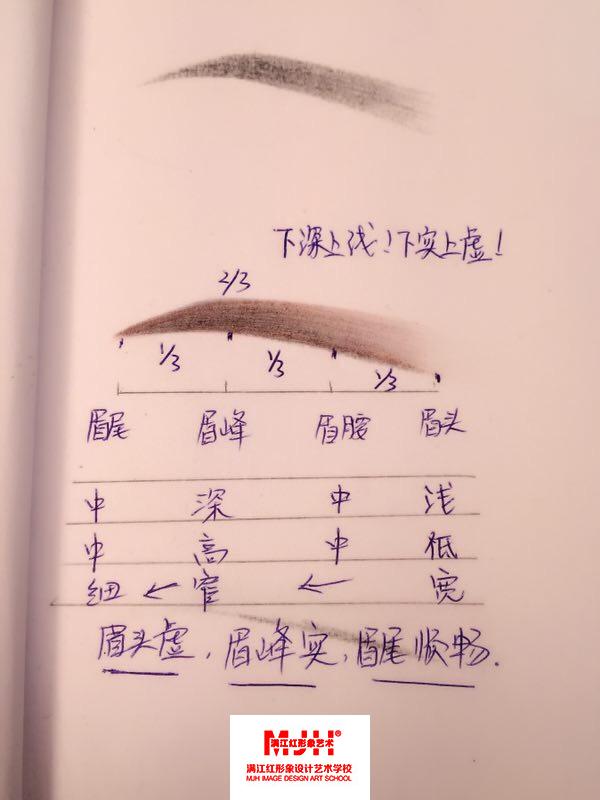 下深上浅！下实上虚！
2/3
1/3 1/3 1/3
眉尾 眉峰 眉腰 眉头
中 深 中 浅
中 高 中 低
细 ← 窄 ← 宽
眉头虚，眉峰实，眉尾顺畅.
MJH®
满江红形象艺术
满江红形象设计艺术学校
MJH IMAGE DESIGN ART SCHOOL